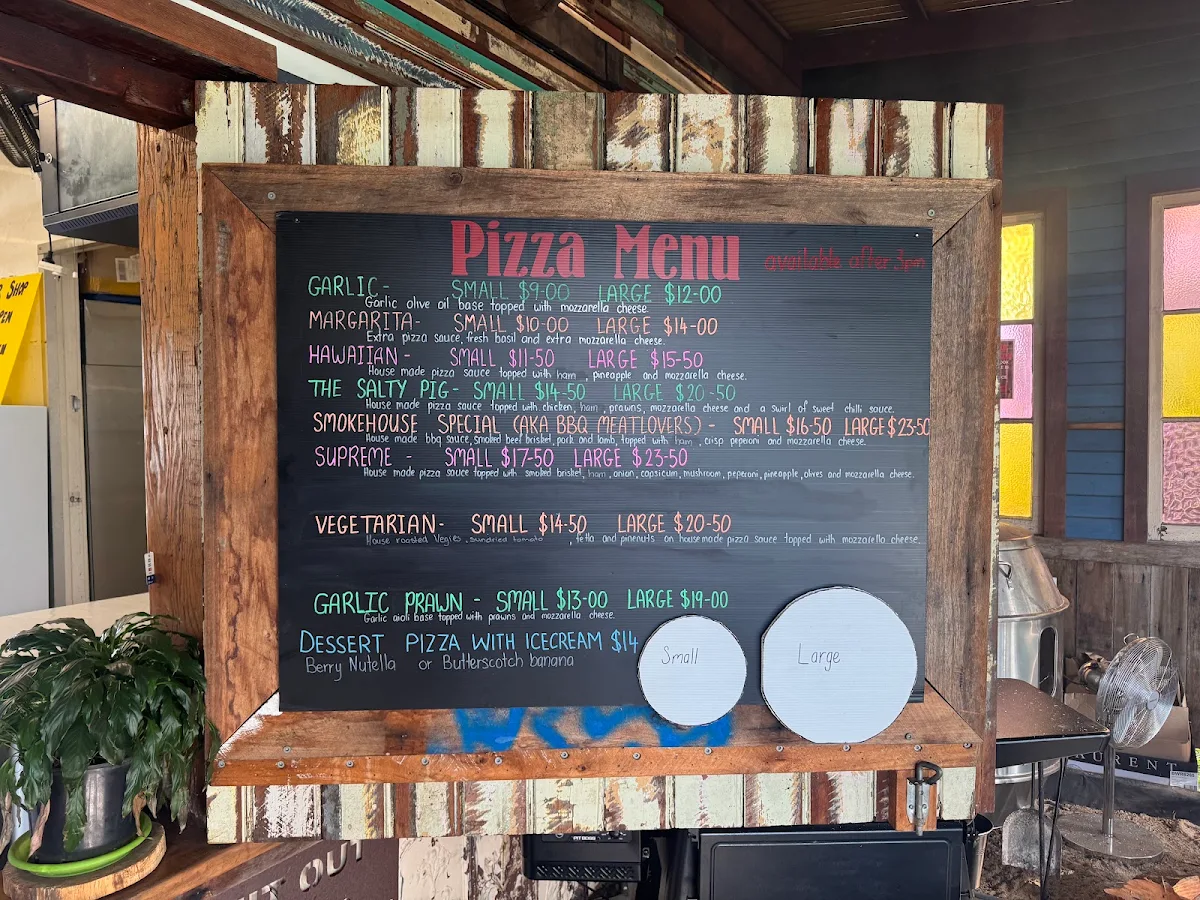 Pizza Menu
available after 3pm
GARLIC- SMALL $9-00 LARGE $12-00
Garlic olive oil base topped with mozzarella cheese.
MARGARITA- SMALL $10-00 LARGE $14-00
Extra pizza sauce, fresh basil and extra mozzarella cheese.
HAWAIIAN- SMALL $11-50 LARGE $15-50
House made pizza sauce topped with ham, pineapple and mozzarella cheese.
THE SALTY PIG- SMALL $14-50 LARGE $20-50
House made pizza sauce topped with chicken, ham, prawns, mozzarella cheese and a swirl of sweet chilli sauce.
SMOKEHOUSE SPECIAL (AKA BBQ MEATLOVERS)- SMALL $16-50 LARGE $23-50
House made bbq sauce, smoked beef brisket, pork and lamb, topped with ham, crisp peperoni and mozzarella cheese.
SUPREME - SMALL $17-50 LARGE $23-50
House made pizza sauce topped with smoked brisket, ham, onion, capsicum, mushroom, peperoni, pineapple, olives and mozzarella cheese.
VEGETARIAN- SMALL $14-50 LARGE $20-50
House roasted Vegies, sundried tomato , fetta and pinenuts on housemade pizza sauce topped with mozzarella cheese.
GARLIC PRAWN - SMALL $13-00 LARGE $19-00
Garlic aioli base topped with prawns and mozzarella cheese.
DESSERT PIZZA WITH ICECREAM $14
Berry Nutella or Butterscotch banana
Small
Large
SHOP
OUT
PIT BOSS